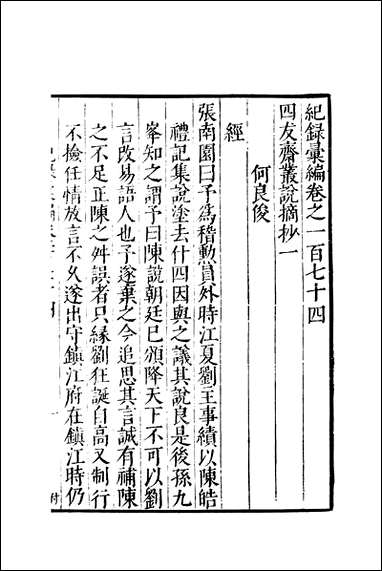 紀録彙編卷之一百七十四
四友齋叢說摘抄一
何良俊
經
張南園曰予為稽勲員外時江夏劉主事績以陳皓
禮記集說塗去什四因與之議其說良是後孫九
峯知之謂予曰陳說朝廷已頒降天下不可以劉
言改易語人也予遂棄之今追思其言誠有補陳
之不足正陳之舛誤者只緣劉狂誕自高又制行
不撿任情放言不久遂出守鎮江府在鎮江時仍